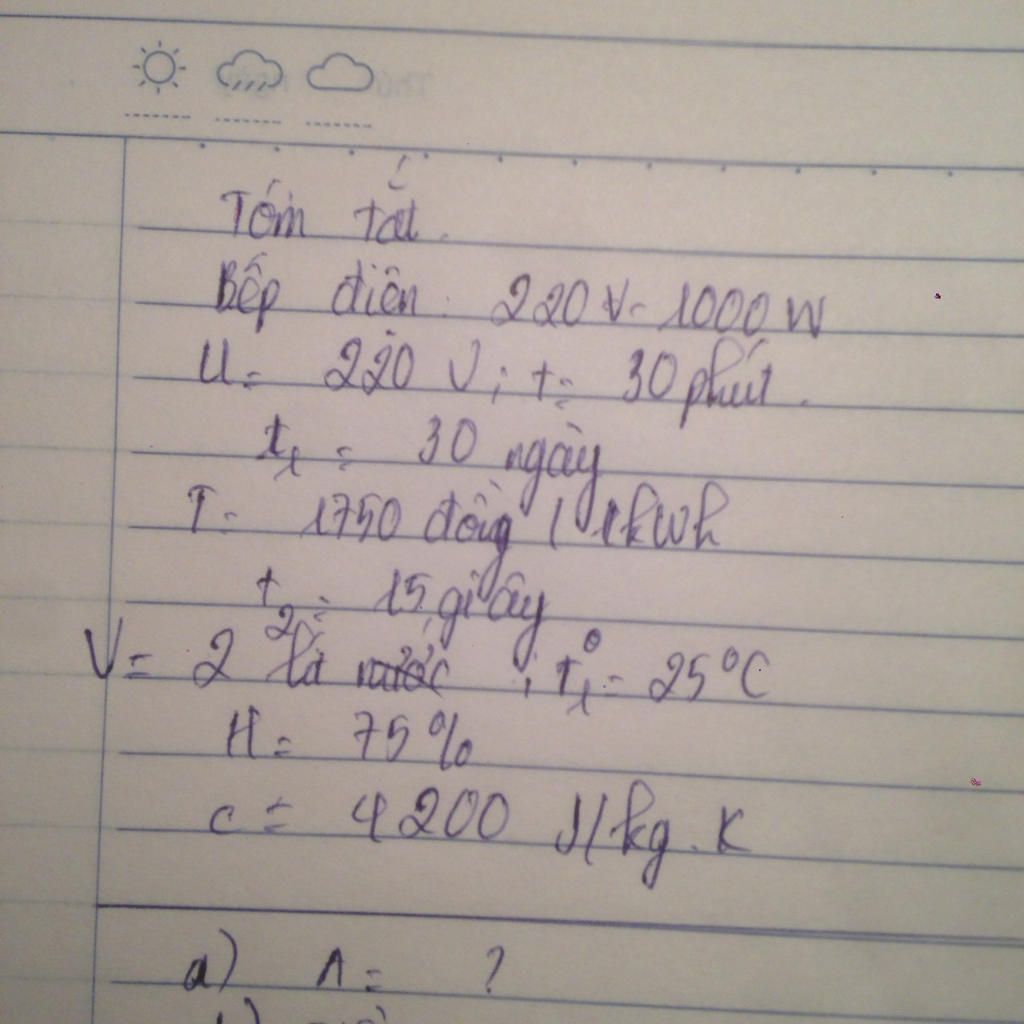 Tóm tắt.
Bếp điện: 220V-1000W
U = 220 V; t = 30 phút.
t₁ = 30 ngày
T = 1750 đồng / 1kWh
t₂ = 15 giây
V = 2 lít nước; t₁° = 25°C
H = 75%
c = 4200 J/kg.K
a) A = ?